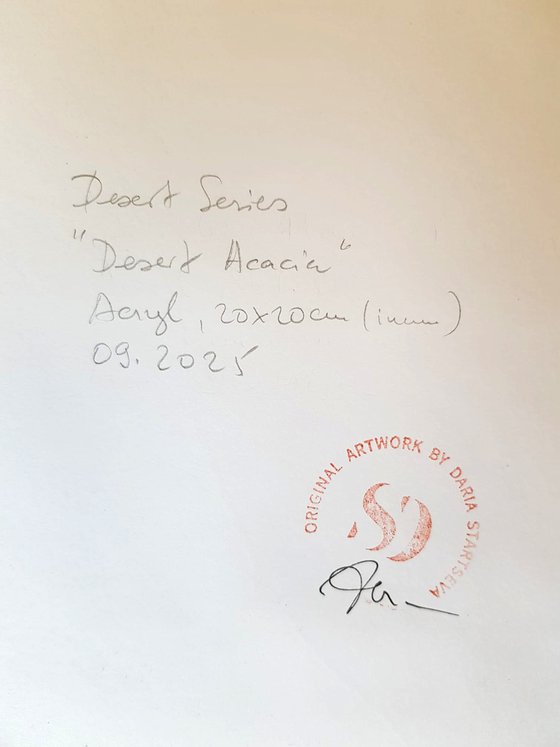 Desert Series
"Desert Acacia"
Acryl, 20x20cm
09.2025
ORIGINAL ARTWORK BY DARIA STARTSEVA